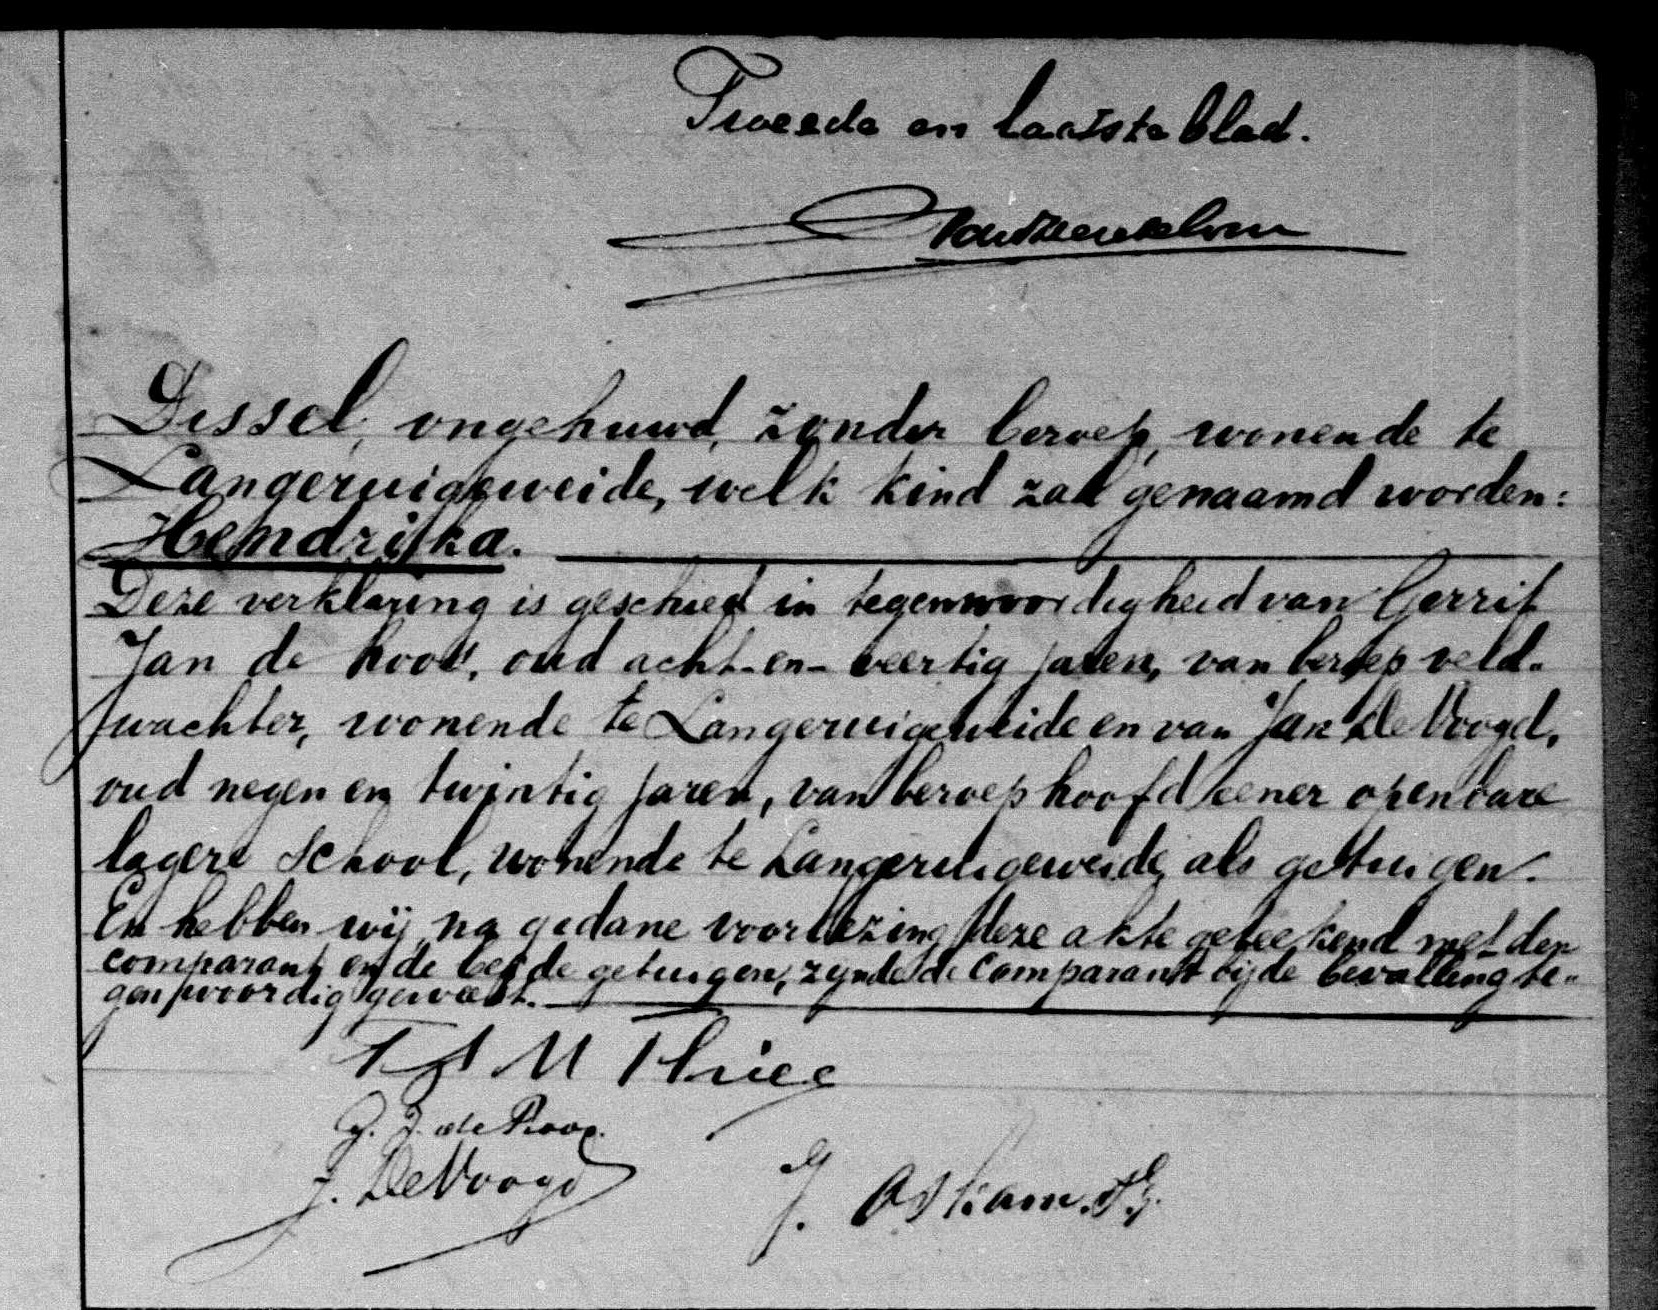 Tweede en laatste blad.
Dissel, ongehuwd, zonder beroep, wonende te
Langeruigeweide, welk kind zal genaamd worden:
Hendrika.
Deze verklaring is geschied in tegenwoordigheid van Gerrit
Jan de Roos, oud acht-en-veertig jaren, van beroep veld-
wachter, wonende te Langeruigeweide en van Jan De Voogd,
oud negen en twintig jaren, van beroep hoofd eener openbare
lagere school, wonende te Langeruigeweide, als getuigen.
En hebben wij, na gedane voorlezing deze akte geteekend met den
comparant en de beide getuigen, zynde de comparant bij de bevalling te-
genwoordig geweest.
G. J. de Roos.
J. De Voogd
J. Oskam